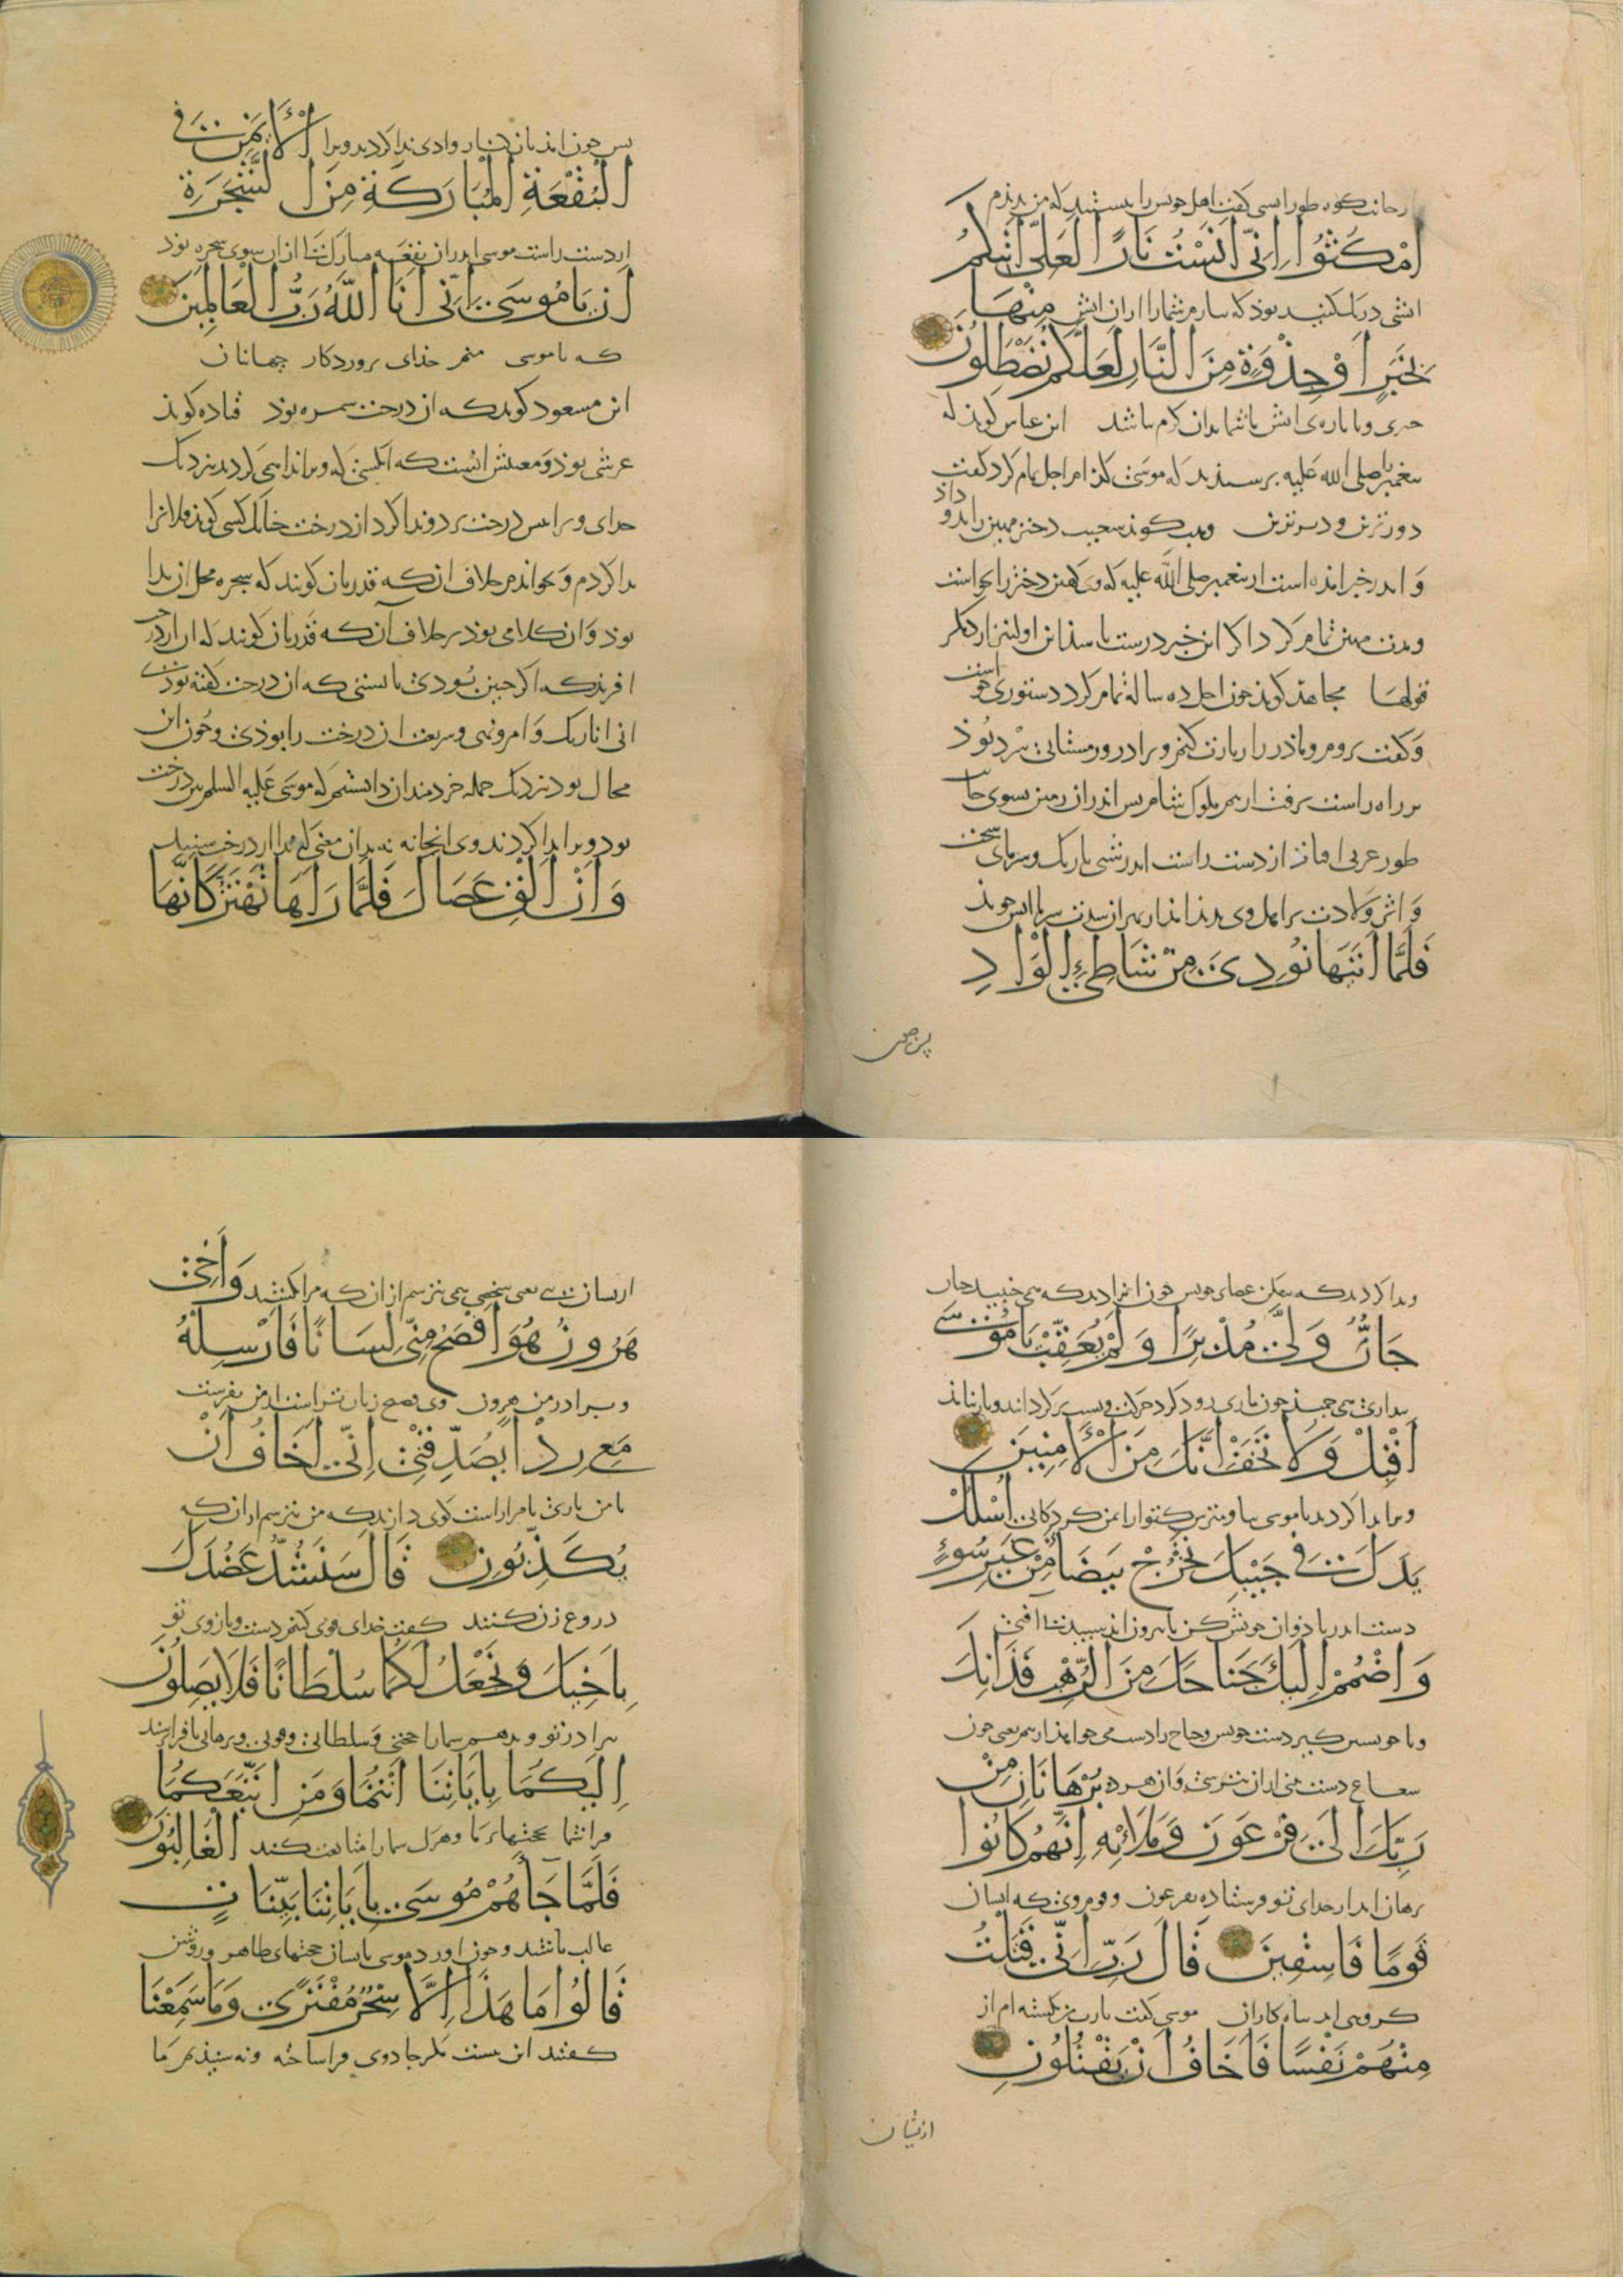 از جانب کوه طور اتشی کفت اهل خویش را بیستید که من بدیدم
اُمْكُثُوا اِنّی اٰنَسْتُ نَارًا لَعَلّی اٰتیکُمْ
اتشی درنک کنید بود که بیارم شما را از ان اتش مِنْهَا
بِخَبَرٍ اَوْ جِذْوَةٍ مِنَ النَّارِ لَعَلَّکُمْ تَصْطَلُونَ
خبری و یا پاره‌ی اتش تا شما بدان کرم باشد ابن عباس کوید که
پیغمبر را صلی الله علیه پرسیدند که موسی کدام اجل تمام کرد کفت
دورترین و دیرترین وهب کوید شعیب دختر مهین را بدو داد
و اندر خبر امده است از پیغمبر صلی الله علیه که وی کهین دختر را بخواست
و مدت مهین تمام کرد اکر این خبر درست باشد این اولیتر از دیکر
قولها مجاهد کوید چون اجل ده ساله تمام کرد دستوری خواست
و کفت بروم و مادر را زیارت کنم و برادر و زمستانی سرد بود
بر راه راست برفت از بیم ملوک شام پس اندر ان زمین بسوی جانب
طور غربی افتاد از دست راست اندر شبی تاریک و سرمای سخت
و اثر ولادت بر اهل وی پدید امد
فَلَمَّا اَتٰیهَا نُودِیَ مِنْ شَاطِئِ الْوَادِ
پس چون
پس چون امد بدان کنار وادی ندا کردند ویرا الْاَیْمَنِ فِی
الْبُقْعَةِ الْمُبَارَکَةِ مِنَ الشَّجَرَةِ
از دست راست موسی اندر ان بقعه مبارک از ان سوی شجره بود
اَنْ یَا مُوسَی اِنّی اَنَا اللّٰهُ رَبُّ الْعَالَمِینَ
که یا موسی منم خدای پروردکار جهانیان
ابن مسعود کوید که ان درخت سمره بود قتاده کوید
حدای ویرا پس درخت برد و ندا کرد از درخت چنانک کسی کوید فلانرا
ندا کردم و بخواندم خلاف ان که قدریان کویند که شجره محل ان ندا
بود و ان کلامی بود بر خلاف آن که قدریان کویند که
افرید که اکر چنین بودی بایستی که ان درخت کفته بودی
انی انا ربک و امر و نهی و شریعت ان درخت را بودی و چون این
محال بود نزدیک جمله خردمندان دانستیم که موسی علیه السلم پس درخت
بود ویرا ندا کردند وی انجا نه بدان معنی که ندا از درخت شنید
وَاَنْ اَلْقِ عَصَاكَ فَلَمَّا رَاٰهَا تَهْتَزُّ کَاَنَّهَا
و ندا کردند که بیفکن عصای خویش چون انرا دید که همی جنبید
جَانٌّ وَلّٰی مُدْبِرًا وَلَمْ یُعَقِّبْ یَا مُوسَی
پنداری همی جنبد چون ماری
اَقْبِلْ وَلَا تَخَفْ اِنَّكَ مِنَ الْاٰمِنِینَ
ویرا ندا کردند یا موسی بیا و مترس اُسْلُكْ
یَدَكَ فِی جَیْبِكَ تَخْرُجْ بَیْضَاءَ مِنْ غَیْرِ سُوءٍ
دست اندر بادوان خویش کن تا بیرون اید سپید بی افتی
وَاضْمُمْ اِلَیْكَ جَنَاحَكَ مِنَ الرَّهْبِ فَذَانِكَ
وبا خویشتن کیر دست خویش
شعاع دست بینی از ان مترس و ان هر دو بُرْهَانَانِ مِنْ
رَبِّكَ اِلٰی فِرْعَوْنَ وَمَلَائِهِ اِنَّهُمْ کَانُوا
برهان اند از خدای تو و فرستاده بفرعون و قوم وی که ایشان
قَوْمًا فَاسِقِینَ قَالَ رَبِّ اِنّی قَتَلْتُ
کروهی اند تباه کاران موسی کفت یا رب من بکشته ام از
مِنْهُمْ نَفْسًا فَاَخَافُ اَنْ یَقْتُلُونِ
از یشان
از یشان یعنی شخصی همی ترسم از ان که مرا بکشند وَاَخِی
هٰرُونُ هُوَ اَفْصَحُ مِنّی لِسَانًا فَاَرْسِلْهُ
و برادر من هرون وی فصیح زبان تر است از من بفرست
مَعِیَ رِدْاً یُصَدِّقُنِی اِنّی اَخَافُ اَنْ
با من یاری تا مرا راست کوی دارند که من ترسم از ان که
یُکَذِّبُونِ قَالَ سَنَشُدُّ عَضُدَكَ
دروغ زن کنند کفت خدای قوی کنم دست و بازوی تو
بِاَخِیكَ وَنَجْعَلُ لَکُمَا سُلْطَانًا فَلَا یَصِلُونَ
ببرادر تو و بدهم شما را حجتی و سلطانی
اِلَیْکُمَا بِاٰیَاتِنَا اَنْتُمَا وَمَنِ اتَّبَعَکُمَا
فرا شما بحجتهاء ما و هرک شما را متابعت کند الْغَالِبُونَ
فَلَمَّا جَاءَهُمْ مُوسَی بِاٰیَاتِنَا بَیِّنَاتٍ
غالب باشند و چون اورد موسی بایشان حجتهای ظاهر و روشن
قَالُوا مَا هٰذَا اِلَّا سِحْرٌ مُفْتَرًی وَمَا سَمِعْنَا
کفتند این نیست مکر جادوی فرا ساخته و نه شنیدیم ما